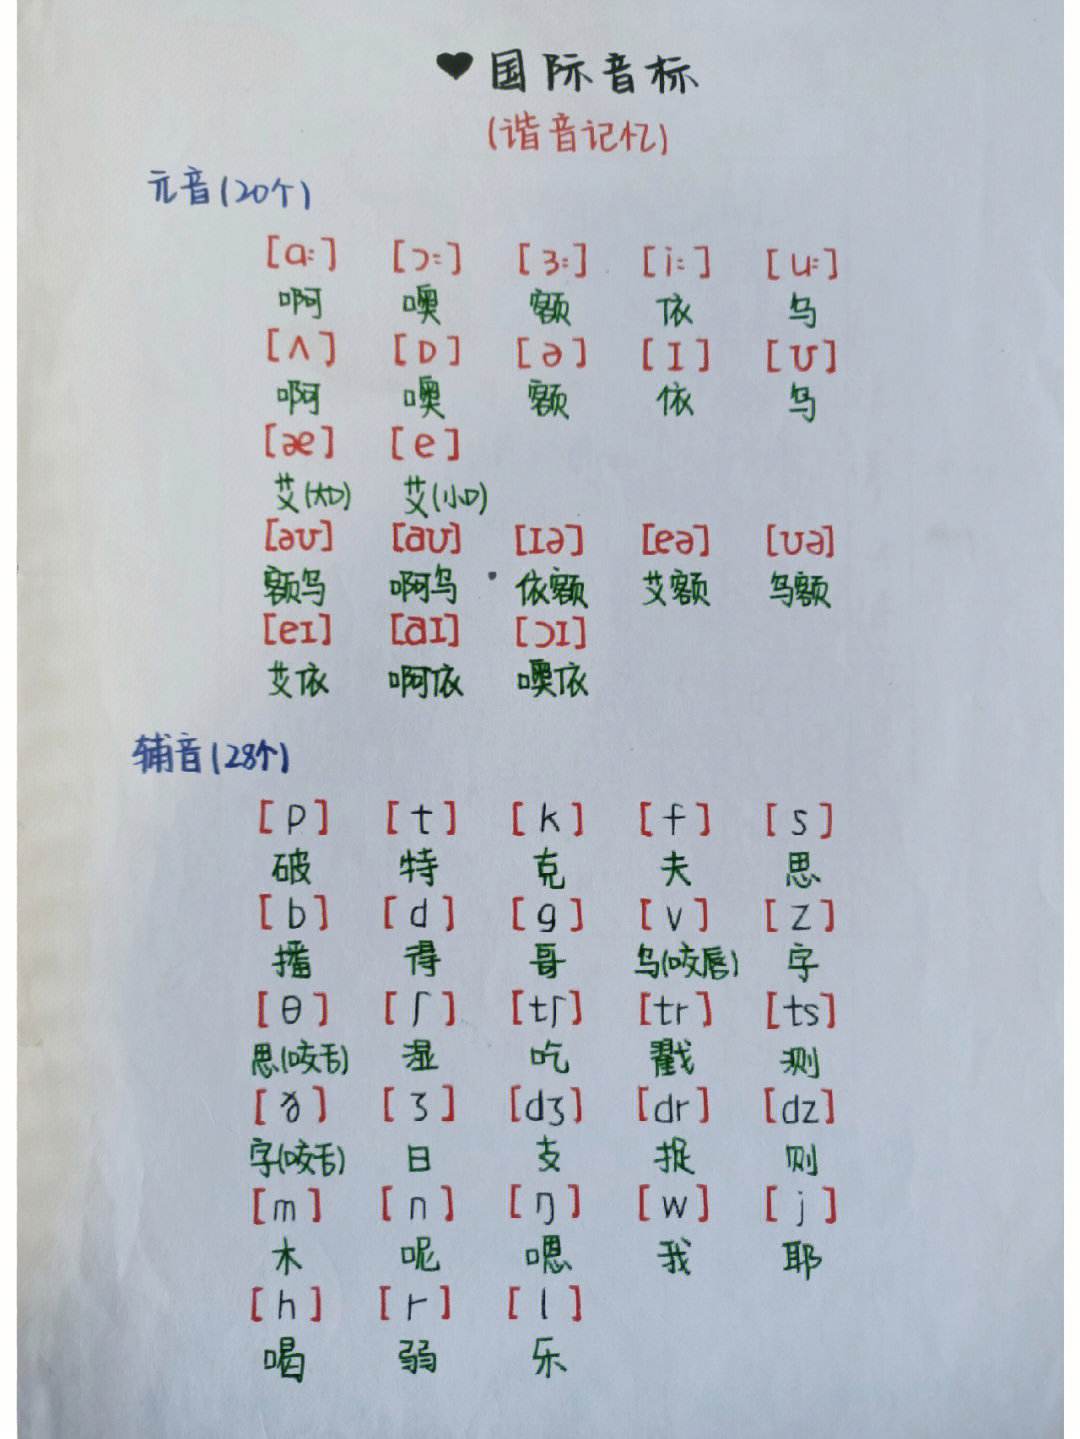 ♥国际音标
(谐音记忆)
元音(20个)
[ɑ:] [ɔ:] [ɜ:] [i:] [u:]
啊 噢 额 依 乌
[ʌ] [ɒ] [ə] [ɪ] [ʊ]
啊 噢 额 依 乌
[æ] [e]
艾(大口) 艾(小口)
[əʊ] [aʊ] [ɪə] [eə] [ʊə]
额乌 啊乌 依额 艾额 乌额
[eɪ] [aɪ] [ɔɪ]
艾依 啊依 噢依
辅音(28个)
[p] [t] [k] [f] [s]
破 特 克 夫 思
[b] [d] [g] [v] [z]
播 得 哥 乌(咬唇) 字
[θ] [ʃ] [tʃ] [tr] [ts]
思(咬舌) 湿 吃 戳 测
[ð] [ʒ] [dʒ] [dr] [dz]
字(咬舌) 日 支 捉 则
[m] [n] [ŋ] [w] [j]
木 呢 嗯 我 耶
[h] [r] [l]
喝 弱 乐